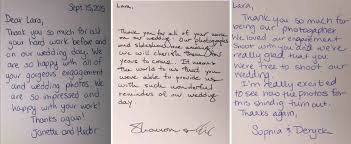 Sept 15, 2015
Dear Lara,
Thank you so much for all
your hard work before and
on our wedding day. We
are so happy with all of
your gorgeous engagement
and wedding photos. We
are so impressed and
happy with your work!
Thanks again!
Janette and
Lara,
Thank you for all of your work
on our wedding. Our photographs
and slideshow are amazing
we will cherish them for
years to come. It means
the world to us that you
were able to provide us
with such wonderful
reminders of our wedding
day.
Sharon &
Lara,
Thank you so much for being
our photographer
We loved our engagement
shoot with you and we're
really glad that you
were free to shoot our
wedding.
I'm really excited
to see how the photos for
this turn out.
Thanks again,
Sophia & Derryck